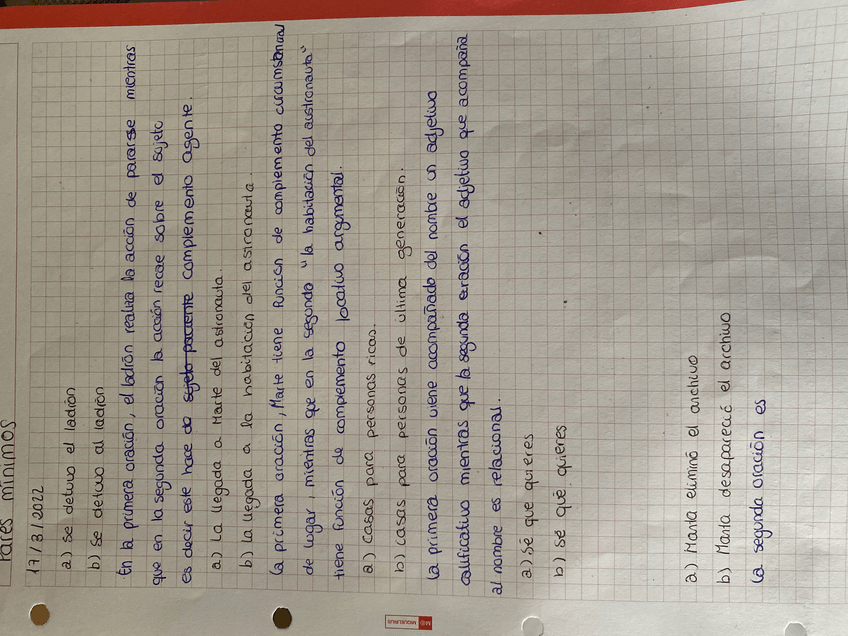 Pares mínimos
17/3/2022
a) Se detuvo el ladrón
b) Se detuvo al ladrón
En la primera oración, el ladrón realiza la acción de pararse mientras
que en la segunda oración la acción recae sobre el sujeto
es decir este hace de sujeto paciente complemento agente.
a) La llegada a Marte del astronauta.
b) La llegada a la habitación del astronauta.
La primera oración, Marte tiene función de complemento circumstancial
de lugar, mientras que en la segunda "la habitación del austronauta"
tiene función de complemento locativo argumental.
a) Casas para personas ricas.
b) Casas para personas de ultima generación.
La primera oración viene acompañado del nombre un adjetivo
calificativo mientras que la segunda oración el adjetivo que acompaña
al nombre es relacional.
a) Sé que quieres
b) Sé qué quieres
a) Marta eliminó el archivo
b) Marta desapareció el archivo
La segunda oración es
MIQUELRIUS